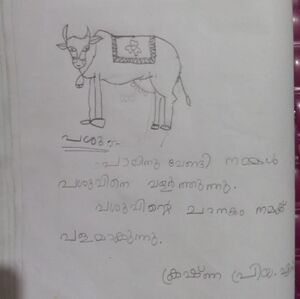 പശു:-
പാലിനു വേണ്ടി നമ്മൾ
പശുവിനെ വളർത്തുന്നു.
പശുവിന്റെ ചാണകം നമുക്ക്
വളമാക്കുന്നു.
കൃഷ്ണ പ്രിയ.